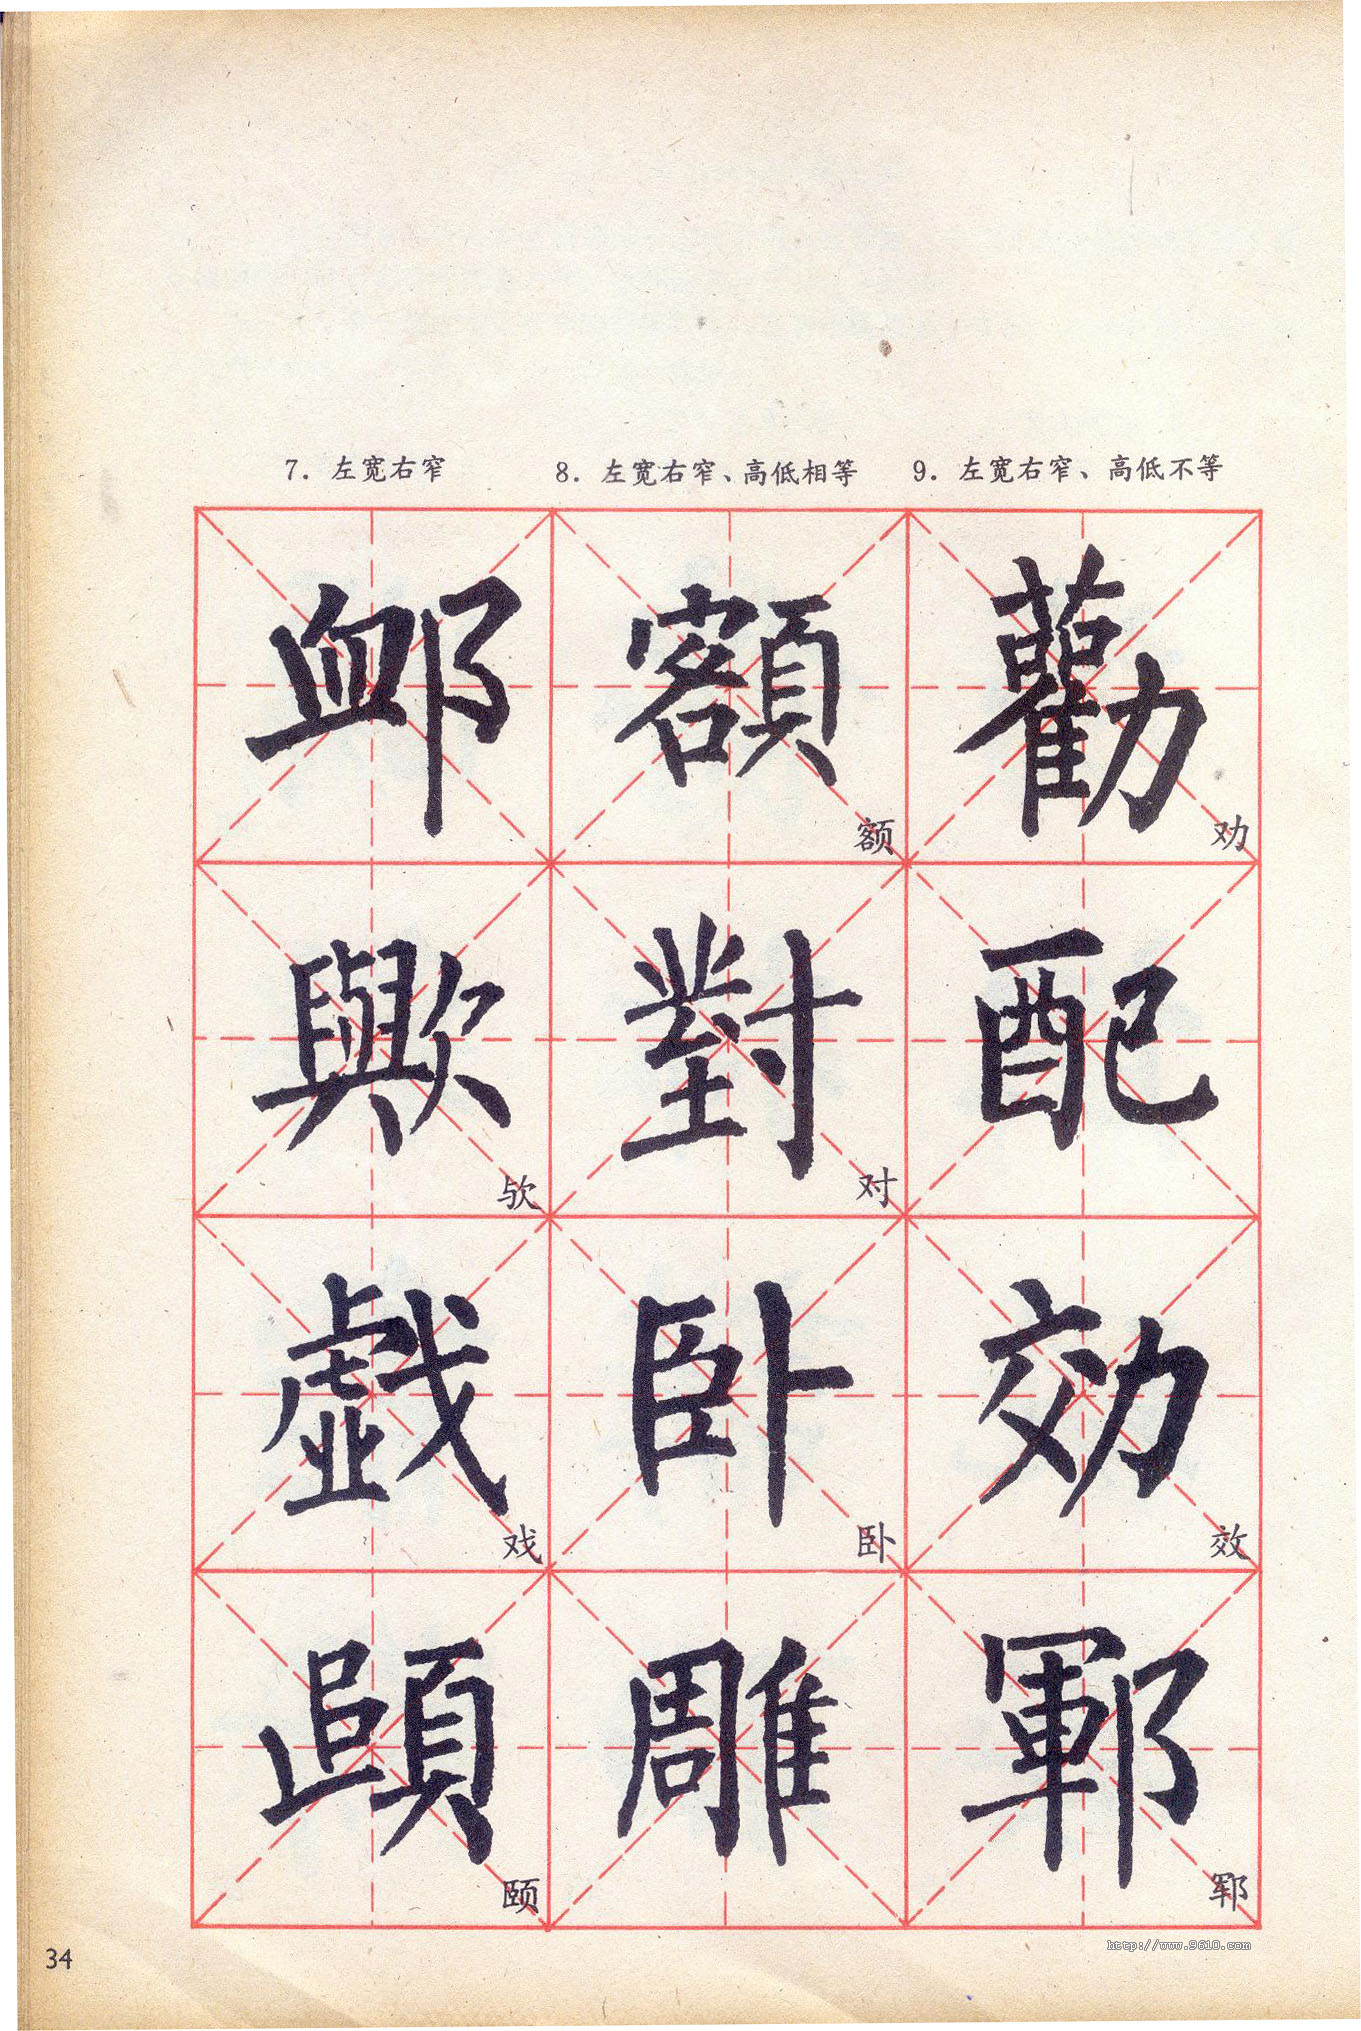 7. 左宽右窄
8. 左宽右窄、高低相等
9. 左宽右窄、高低不等
卹 額 勸
额 劝
歟 對 配
欤 对
戯 卧 効
戏 卧 效
頤 雕 鄆
颐 郓
34
http://www.9610.com